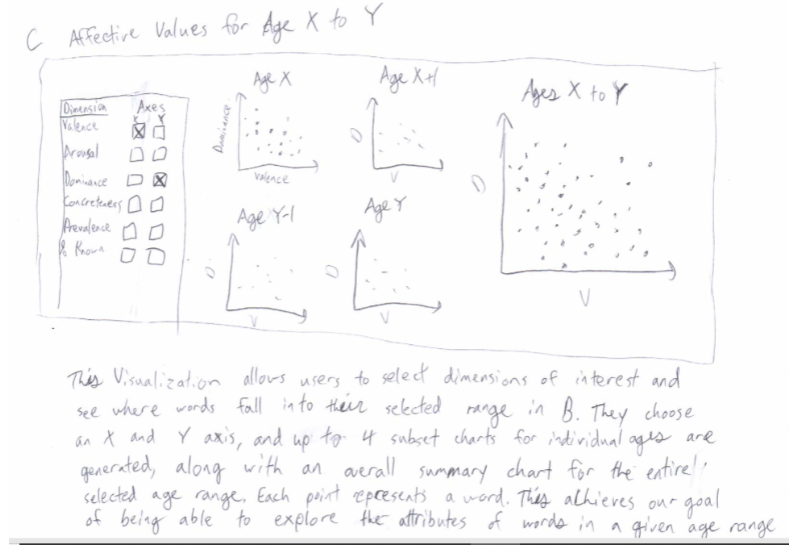 C Affective Values for Age X to Y
Dimension Axes
X Y
Valence
Arousal
Dominance
Concreteness
Prevalence
% Known
Age X
Dominance
Valence
Age X+1
D
V
Age Y-1
D
V
Age Y
D
V
Ages X to Y
D
V
This Visualization allows users to select dimensions of interest and
see where words fall into their selected range in B. They choose
an X and Y axis, and up to 4 subset charts for individual ages are
generated, along with an overall summary chart for the entire
selected age range. Each point represents a word. This achieves our goal
of being able to explore the attributes of words in a given age range